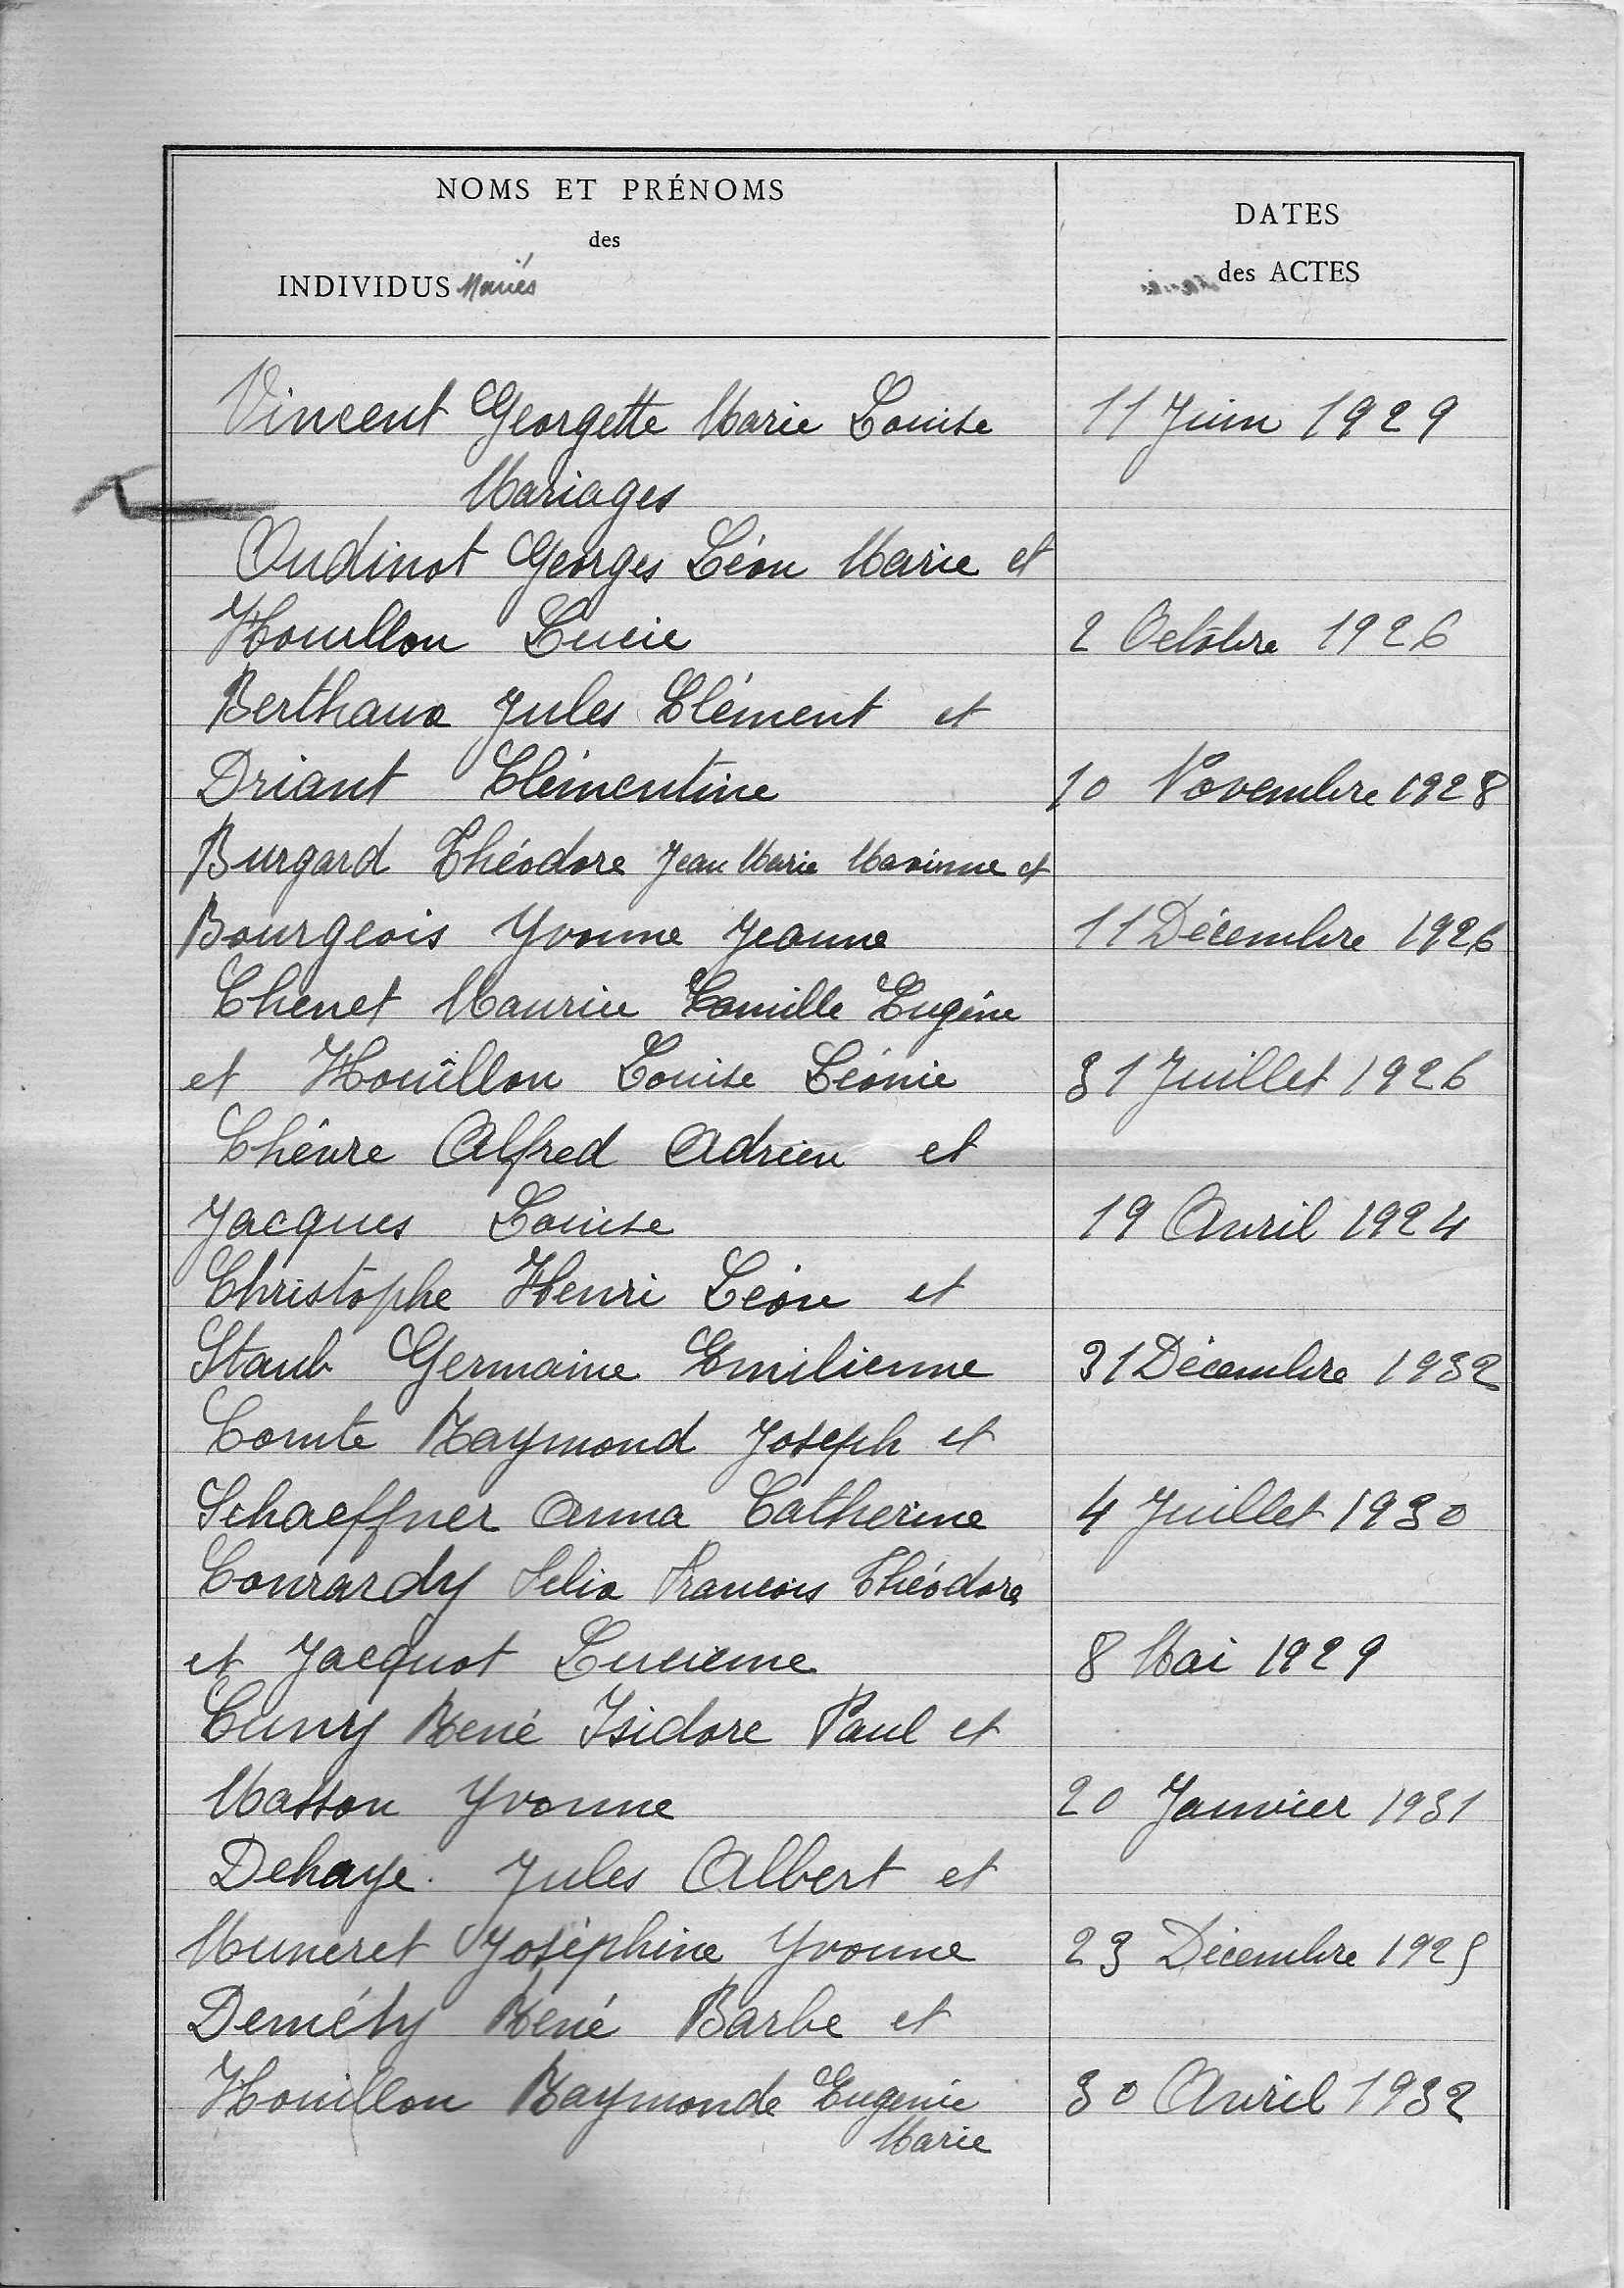 NOMS ET PRÉNOMS
des
INDIVIDUS Mariés
DATES
des ACTES
Vincent Georgette Marie Louise 11 Juin 1929
Mariages
Oudinot Georges Léon Marie et
Houillon Lucie 2 Octobre 1926
Berthaux Jules Clément et
Driant Clémentine 10 Novembre 1928
Burgard Théodore Jean Marie Maxime et
Bourgeois Yvonne Jeanne 11 Décembre 1926
Chenet Maurice Camille Eugène
et Houillon Louise Léonie 31 Juillet 1926
Chèvre Alfred Adrien et
Jacques Louise 19 Avril 1924
Christophe Henri Léon et
Staub Germaine Emilienne 31 Décembre 1932
Comte Raymond Joseph et
Schaeffner Anna Catherine 4 Juillet 1930
Conrardy Félix François Théodore
et Jacquot Lucienne 8 Mai 1929
Cuny René Isidore Paul et
Masson Yvonne 20 Janvier 1931
Dehaye Jules Albert et
Muneret Joséphine Yvonne 23 Décembre 1925
Deméty René Barbe et
Houillon Raymonde Eugenie 30 Avril 1932
Marie